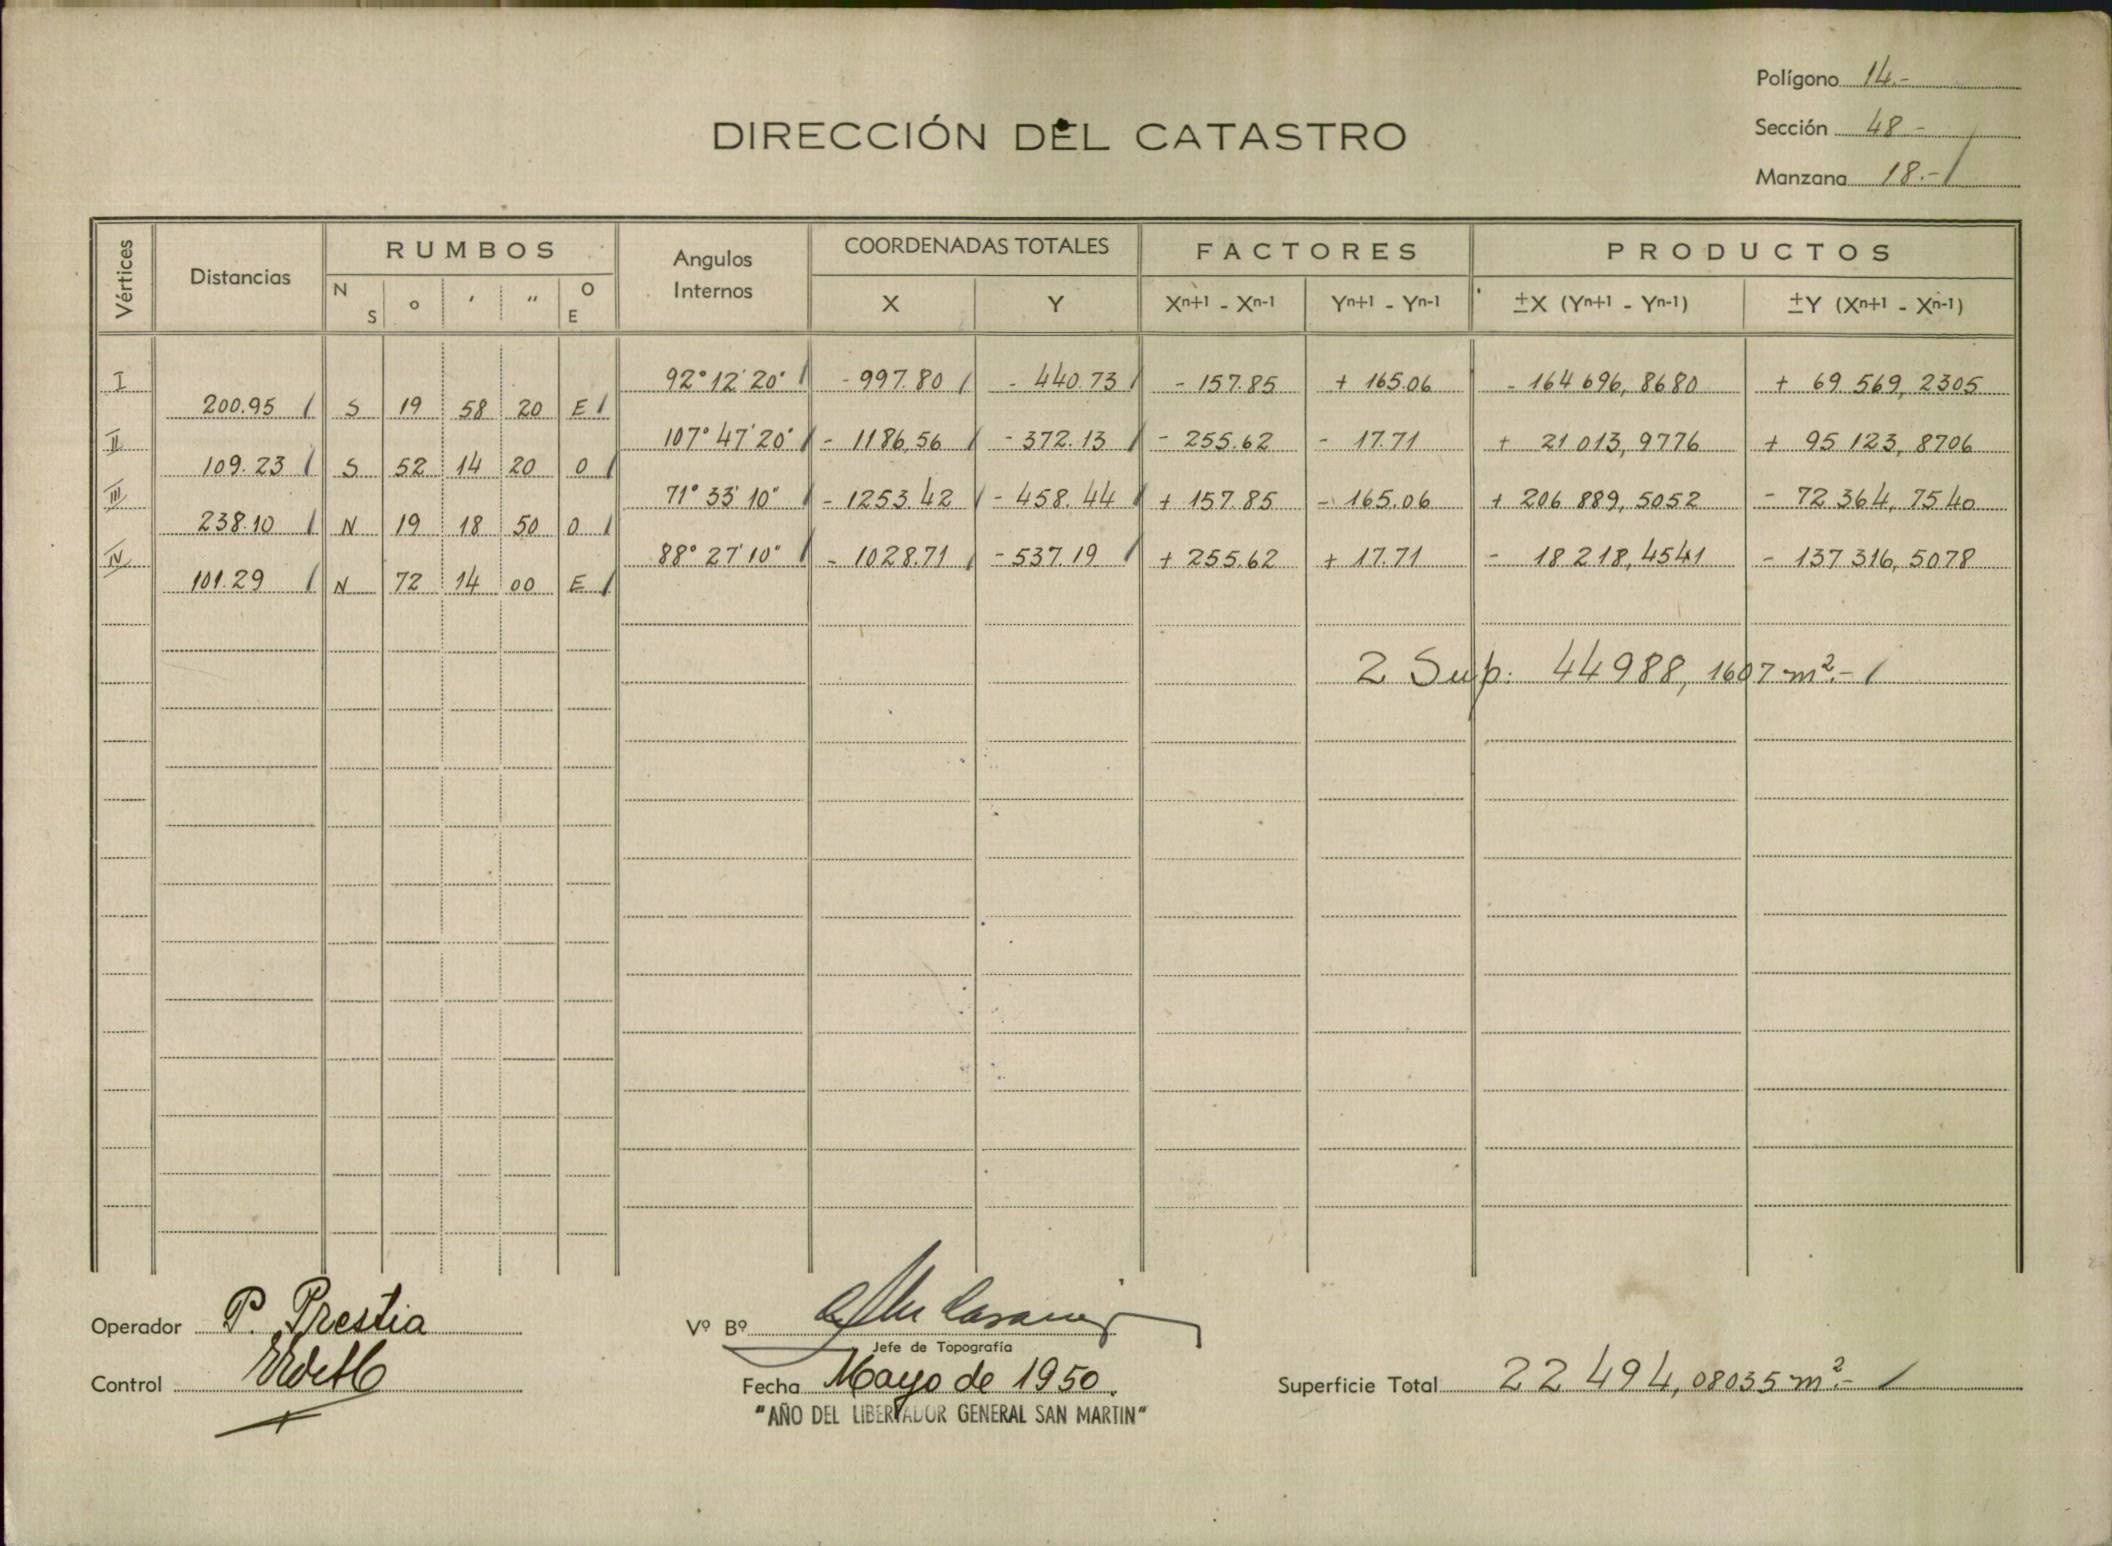 Polígono 14.-
Sección 48-
Manzana 18.-/
DIRECCIÓN DEL CATASTRO
Vértices Distancias RUMBOS Angulos Internos COORDENADAS TOTALES FACTORES PRODUCTOS
N S ° ′ ″ O E X Y Xⁿ⁺¹ - Xⁿ⁻¹ Yⁿ⁺¹ - Yⁿ⁻¹ ±X (Yⁿ⁺¹ - Yⁿ⁻¹) ±Y (Xⁿ⁺¹ - Xⁿ⁻¹)
I 92° 12' 20" / - 997.80 / - 440.73 / - 157.85 + 165.06 - 164 696, 8680 + 69 569, 2305
200.95 / S 19 58 20 E /
II 107° 47' 20" / - 1186,56 / - 372.13 / - 255.62 - 17.71 + 21 013, 9776 + 95 123, 8706
109.23 / S 52 14 20 O /
III 71° 33' 10" / - 1253.42 / - 458.44 / + 157.85 - 165.06 + 206 889, 5052 - 72 364, 7540
238.10 / N 19 18 50 O /
IV 88° 27' 10" / - 1028.71 / - 537.19 / + 255.62 + 17.71 - 18 218, 4541 - 137 316, 5078
101.29 / N 72 14 00 E /
2 Sup: 44988, 1607 m².- /
Operador P. Prestia
Control
Vº Bº
Jefe de Topografia
Fecha Mayo de 1950.
"AÑO DEL LIBERTADOR GENERAL SAN MARTIN"
Superficie Total 22 494, 08035 m².- /